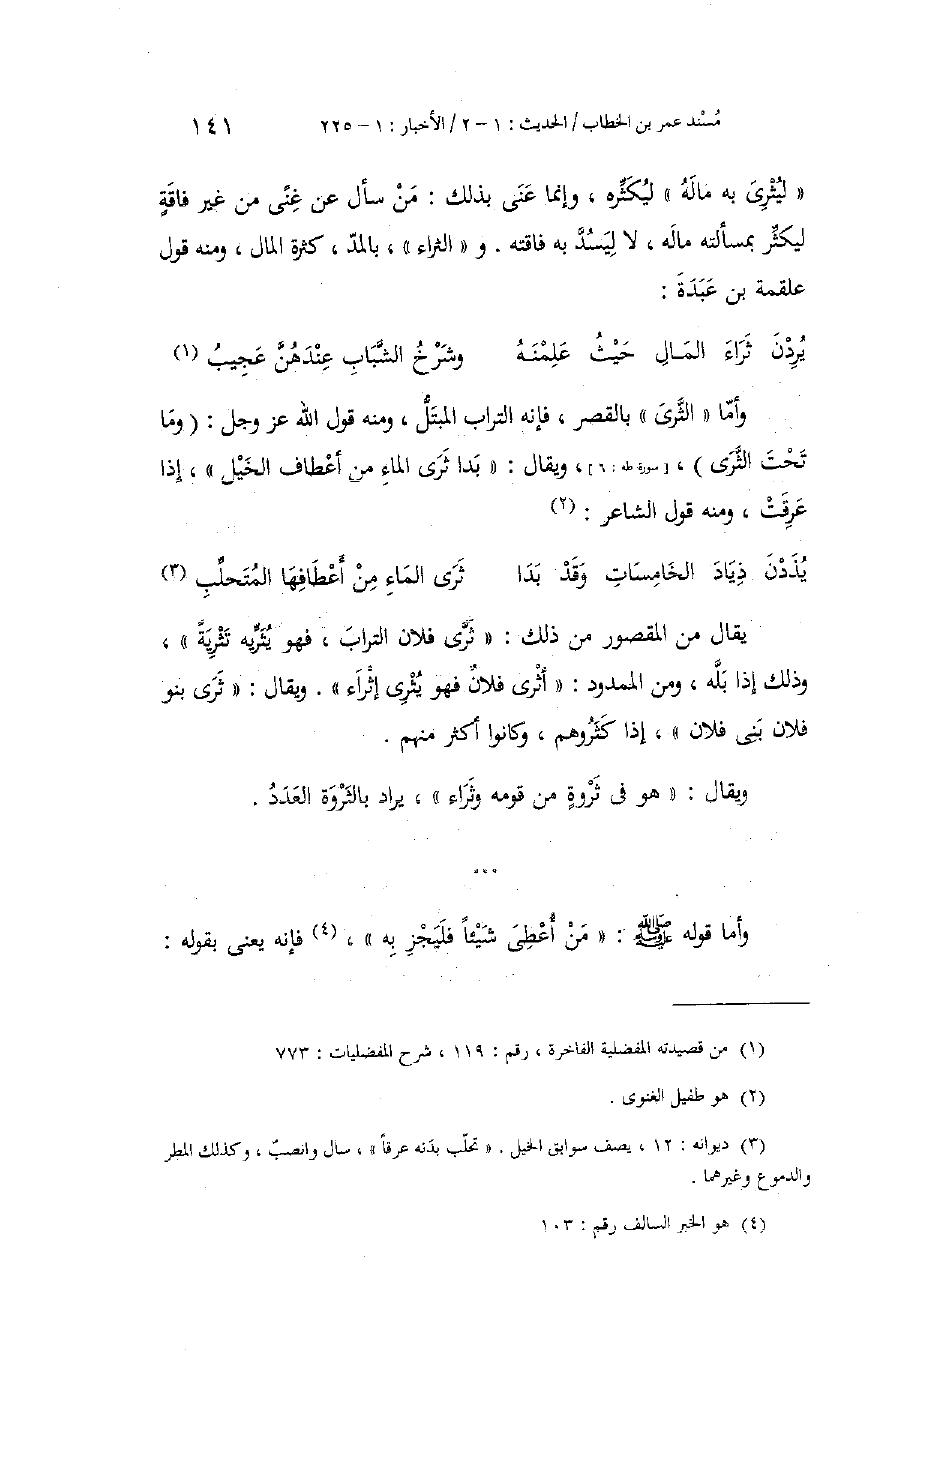 مُسْند عمر بن الخطاب / الحديث : ١ – ٢ / الأخبار : ١ – ٢٢٥ ١٤١
« لِيُثْرِىَ به مالَهُ » لِيُكَثِّره ، وإنما عَنَى بذلك : مَنْ سأل عن غِنًى من غير فاقَةٍ
ليكثِّر بمسألته مالَه ، لا لِيَسُدَّ به فاقته . و « الثراء » ، بالمدّ ، كثرة المال ، ومنه قول
علقمة بن عَبَدَةَ :
يُرِدْنَ ثَرَاءَ المَـالِ حَيْثُ عَلِمْنَـهُ وشَرْخُ الشَّبَابِ عِنْدَهُنَّ عَجِيبُ (١)
وأمّا « الثَّرَىَ » بالقصر ، فإنه التراب المبتَلُّ ، ومنه قول الله عز وجل : ( ومَا
تَحْتَ الثَّرَى ) ، [ سورة طه : ٦ ] ، ويقال : « بَدا ثَرَى الماءِ من أعْطاف الخَيْل » ، إذا
عَرِقَتْ ، ومنه قول الشاعر : (٢)
يُذَدْنَ ذِيَادَ الخَامِسَاتِ وَقَدْ بَدَا ثَرَى المَاءِ مِنْ أَعْطَافِهَا المُتَحلِّبِ (٣)
يقال من المقصور من ذلك : « ثَرَّى فلان الترابَ ، فهو يُثَرِّيه تَثْرِيَةً » ،
وذلك إذا بَلَّه ، ومن الممدود : « أثْرى فلانٌ فهو يُثْرِى إثْرَاء » . ويقال : « ثَرَى بنو
فلان بَنِى فلان » ، إذا كَثَرُوهم ، وكانوا أكثر منهم .
ويقال : « هو فى ثَرْوةٍ من قومه وثَرَاء » ، يراد بالثَرْوَة العَدَدُ .
***
وأما قوله ﷺ : « مَنْ أُعْطِىَ شَيْئاً فلْيَجْزِ بِه » ، (٤) فإنه يعنى بقوله :
(١) من قصيدته المفضلية الفاخرة ، رقم : ١١٩ ، شرح المفضليات : ٧٧٣
(٢) هو طفيل الغنوى .
(٣) ديوانه : ١٢ ، يصف سوابق الخيل . « تحلّب بدَنه عرقاً » ، سال وانصبّ ، وكذلك المطر
والدموع وغيرهما .
(٤) هو الخبر السالف رقم : ١٠٣